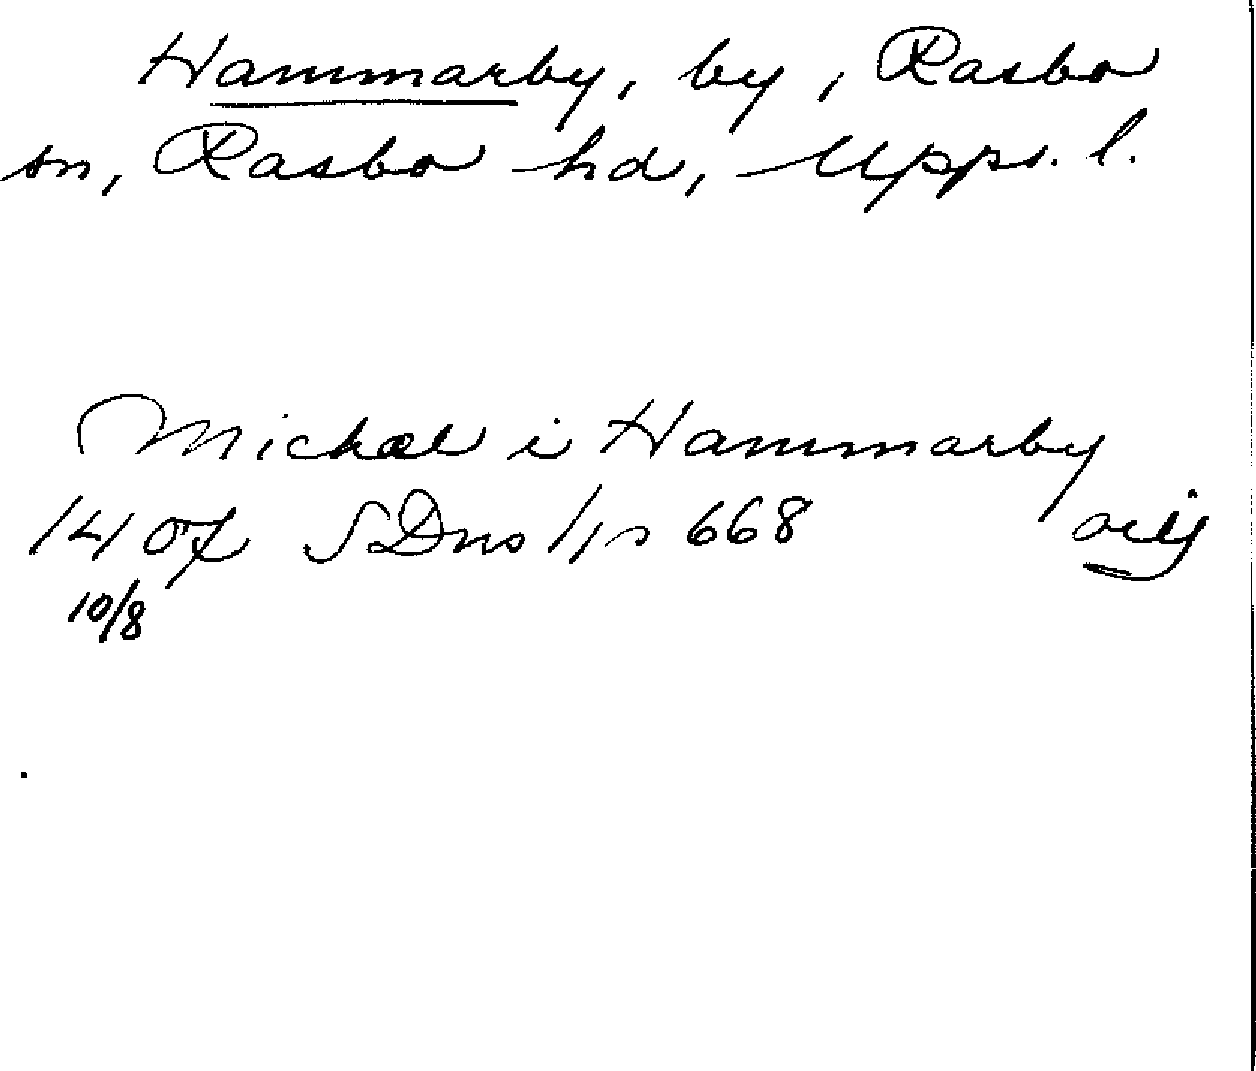 Hammarby, by, Rasbo
sn, Rasbo hd, Upps. l.
Mickæl i Hammarby
1407 SDns 1 s 668
10/8